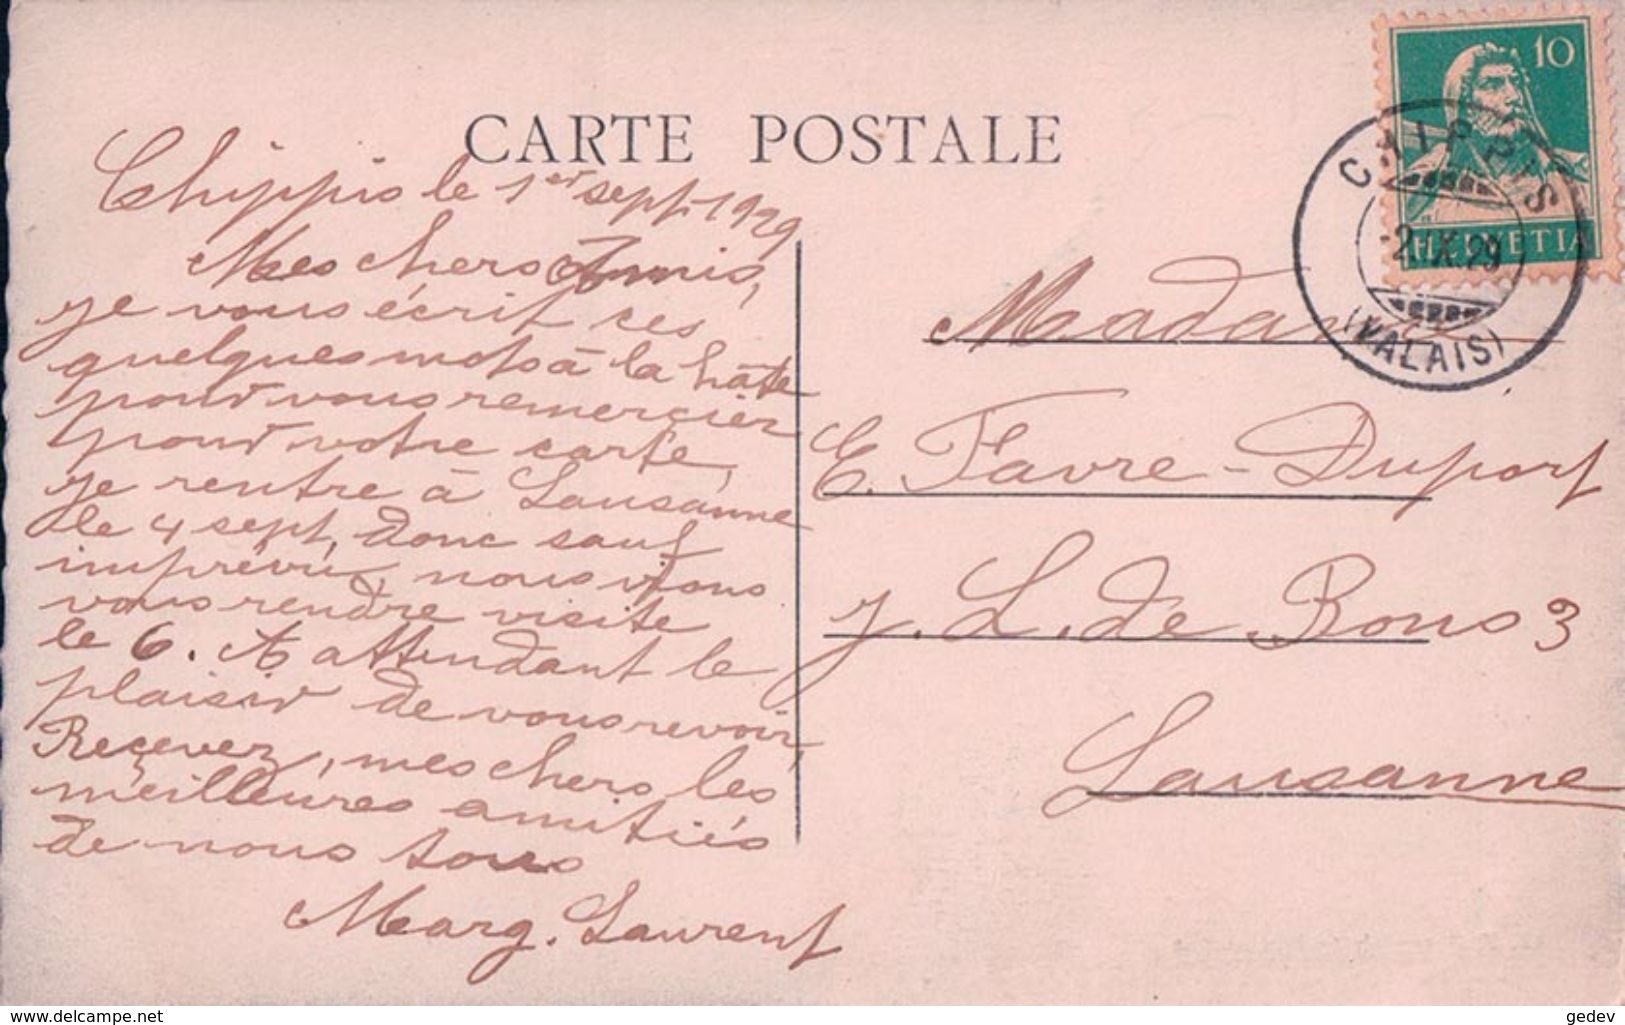 CARTE POSTALE
Chippis le 1er sept. 1929
Mes chers Amis,
je vous écrit ces
quelques mots à la hâte
pour vous remercier
pour votre carte,
je rentre à Lausanne
le 4 sept, donc sauf
imprévu, nous irons
vous rendre visite
le 6. A attendant le
plaisir de vous revoir,
Reçevez, mes chers les
meilleures amitiés
de nous tous
Marg. Laurent
10
HELVETIA
CHIPPIS
-2.IX.29
(VALAIS)
Madame
E. Favre-Duport
J. L. de Bons 3
Lausanne
www.delcampe.net
gedev